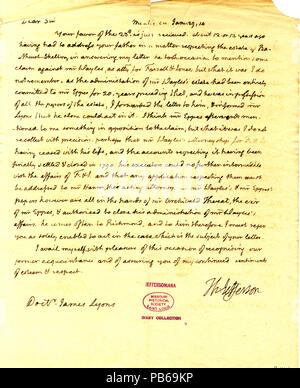 Dear Sir
Your favor of the 23d is just received. about 12. or 13. years ago
having had to address your father on a matter respecting the estate of Ba-
thurst Skelton, in answering my letter he took occasion to mention some
claim against mr Wayles, as ally for Farrell & Jones. but what it was I do
not remember. as the administration of mr Wayles's estate had been entirely
committed to mr Eppes for 20. years preceding that, and he was in possession
of all the papers of the estate, I forwarded the letter to him, & informed mr
Lyons that he alone could act in it. I think mr Eppes afterwards men-
tioned to me something in opposition to the claim, but what it was I do not
recollect with precision. perhaps that mr Wayles's
having ceased with his life, and the accounts respecting it having been
finally settled & closed in 1790. his executors could no further intermeddle
with the affairs of F. & J. and that any application respecting them must
be addressed to mr Hanson their acting attorney. mr Wayles's & mr Eppes's
papers however are all in the hands of mr Archibald Thweat, the exr
of mr Eppes, & authorised to close his administration of mr Wayles's
affairs. he is now often in Richmond, and to him therefore I must refer
you as solely enabled to act in the case which is the subject of your letter.
I avail myself with pleasure of this occasion of recognising our
former acquaintance and of assuring you of my continued sentiments
of esteem & respect.
Th: Jefferson
JEFFERSONIANA
MISSOURI
HISTORICAL
SOCIETY
SAINT LOUIS
BIXBY COLLECTION
Doctr. James Lyons
alamy
Image ID: PB69KP
www.alamy.com